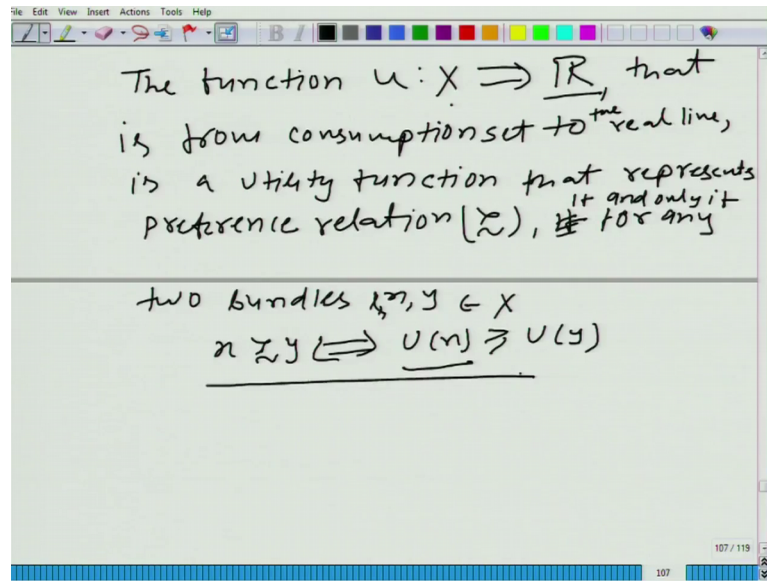 ile Edit View Insert Actions Tools Help
The function u : X ⟹ ℝ, that
is from consumption set to the real line,
is a utility function that represents
preference relation (≿), if and only if for any
two bundles x, y ∈ X
x ≿ y ⟺ U(x) ⩾ U(y)
107 / 119
107